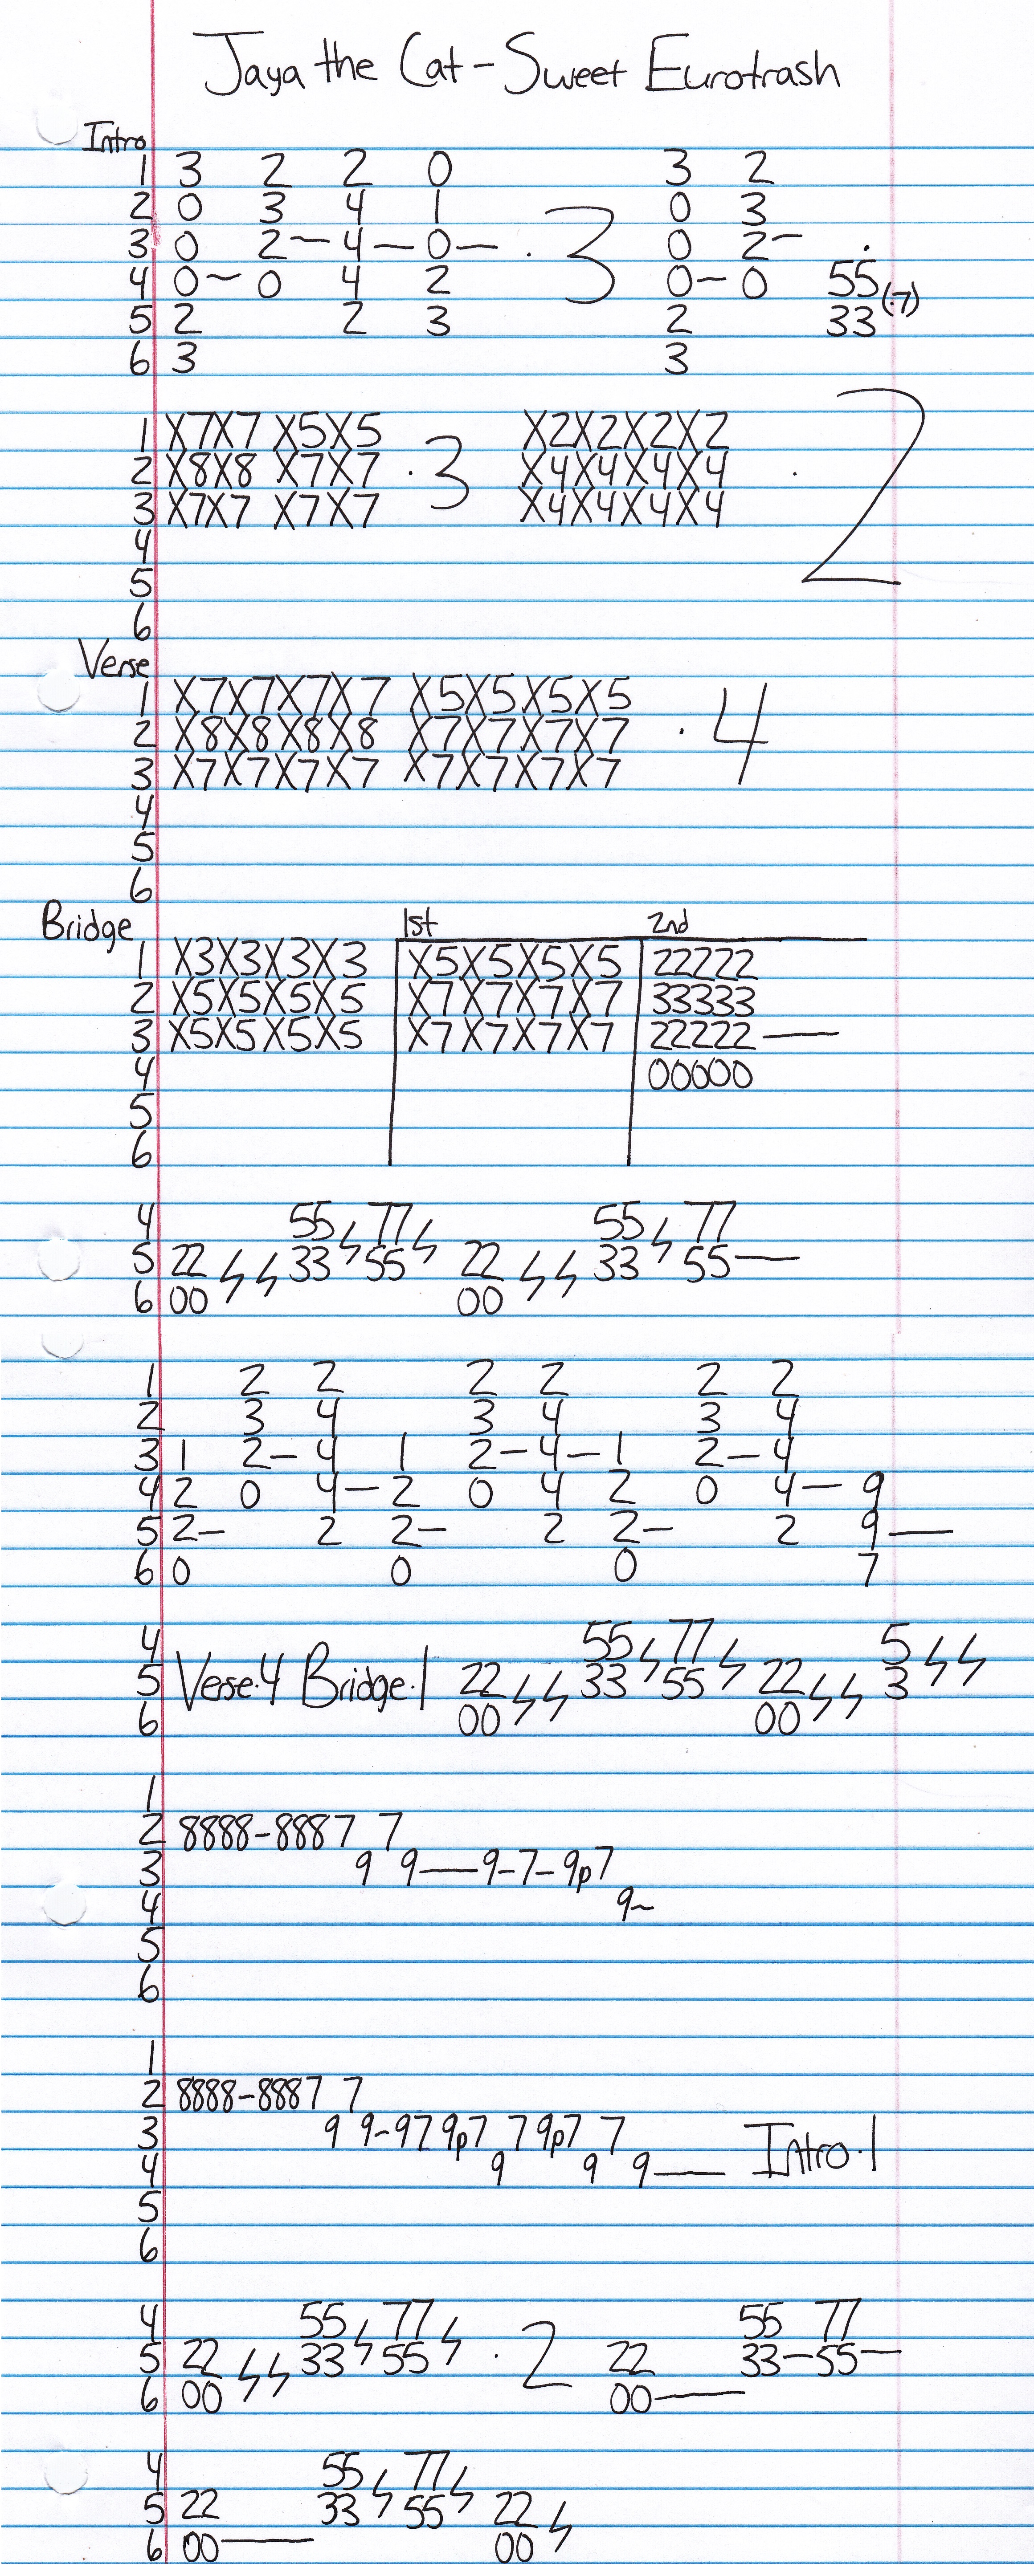 Jaya the Cat - Sweet Eurotrash
Intro
1 3 2 2 0 3 2
2 0 3 4 1 0 3
3 0 2 - 4 - 0 - . 3 0 2 - .
4 0 ~ 0 4 2 0 - 0 55 (.7)
5 2 2 3 2 33
6 3 3
1 X7X7 X5X5 X2X2X2X2
2 X8X8 X7X7 . 3 X4X4X4X4 . 2
3 X7X7 X7X7 X4X4X4X4
4
5
6
Verse
1 X7X7X7X7 X5X5X5X5
2 X8X8X8X8 X7X7X7X7 . 4
3 X7X7X7X7 X7X7X7X7
4
5
6
Bridge 1st 2nd
1 X3X3X3X3 X5X5X5X5 22222
2 X5X5X5X5 X7X7X7X7 33333
3 X5X5X5X5 X7X7X7X7 22222 —
4 00000
5
6
4 55 ϟ 77 ϟ 55 ϟ 77
5 22 ϟ ϟ 33 55 22 ϟ ϟ 33 55 —
6 00 00
1 2 2 2 2 2 2
2 3 4 3 4 3 4
3 1 2 - 4 1 2 - 4 - 1 2 - 4
4 2 0 4 - 2 0 4 2 0 4 - 9
5 2 - 2 2 - 2 2 - 2 9 —
6 0 0 0 7
4 55 ϟ 77 ϟ 5 ϟ ϟ
5 Verse.4 Bridge.1 22 ϟ ϟ 33 55 22 ϟ ϟ 3
6 00 00
1
2 8888-8887 7
3 9 9—9-7-9p7
4 9~
5
6
1
2 8888-8887 7
3 9 9-979p7 79p7 7 Intro.1
4 9 9 9—
5
6
4 55 ϟ 77 ϟ 55 77
5 22 ϟ ϟ 33 55 . 2 22 33-55-
6 00 00—
4 55 ϟ 77 ϟ
5 22 33 55 22 ϟ
6 00— 00